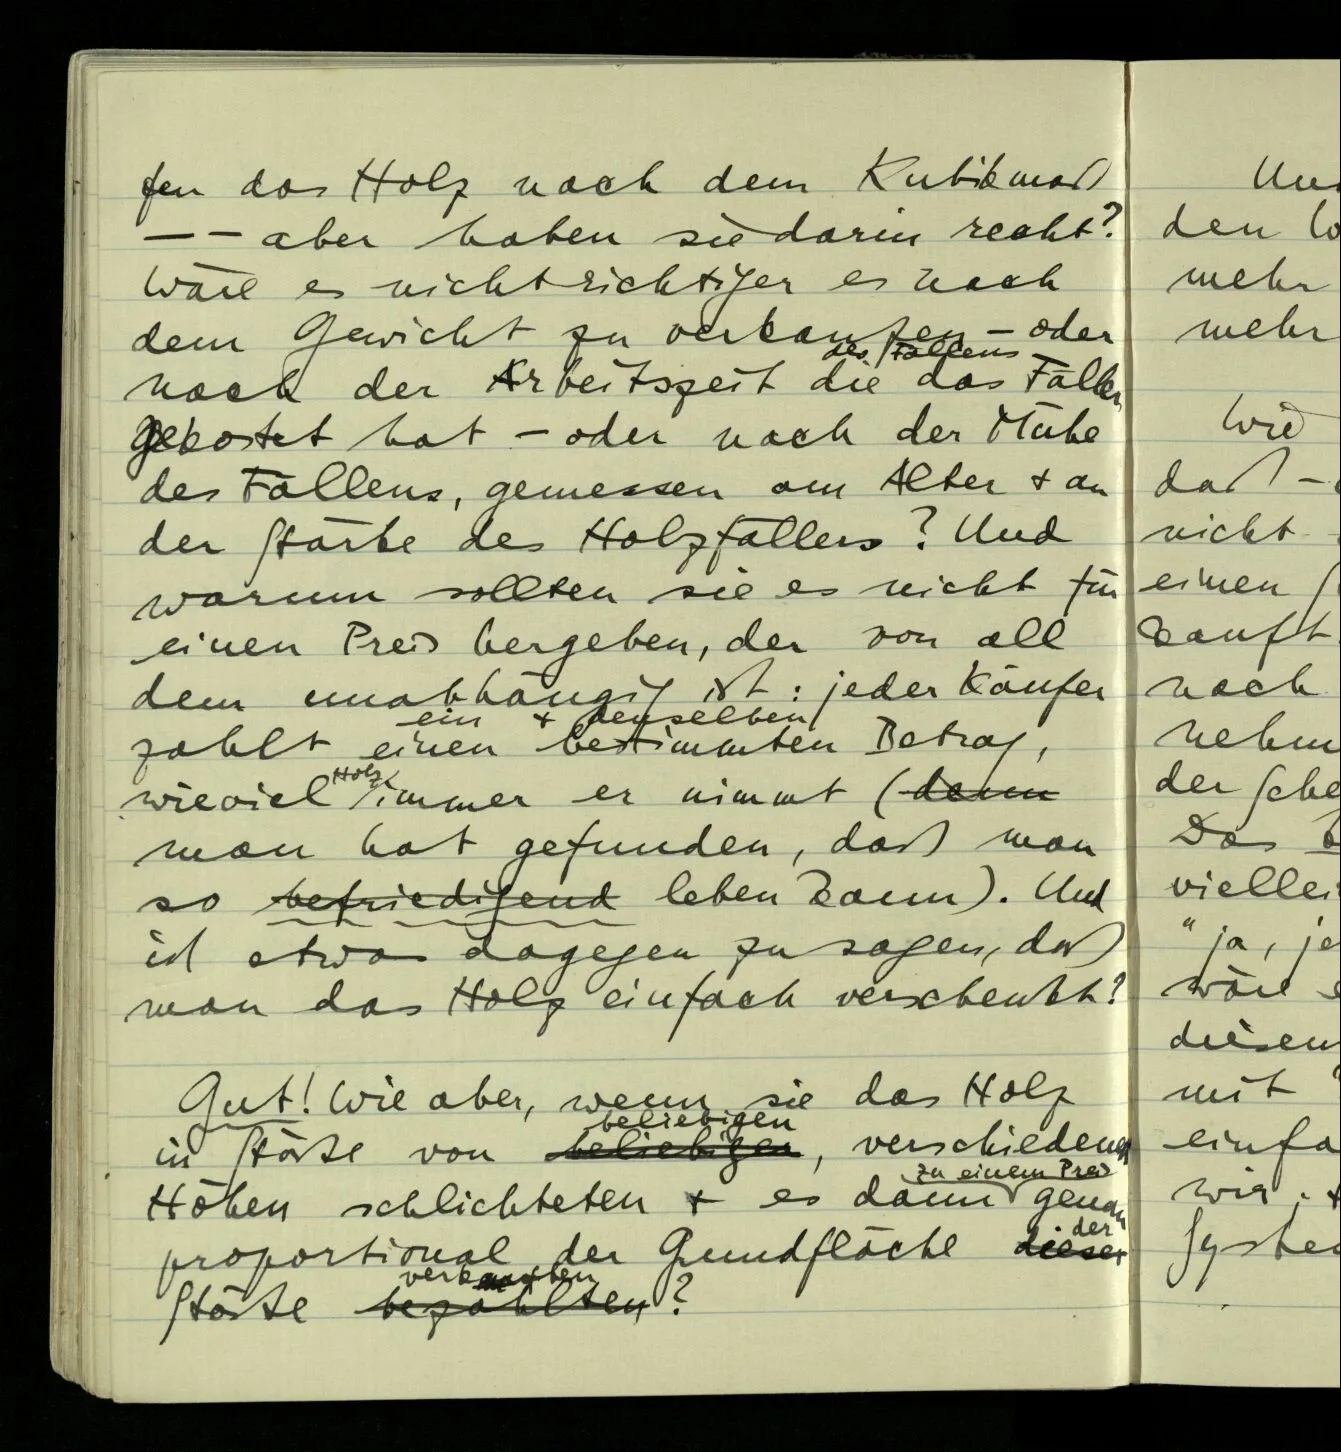 fen das Holz nach dem Kubikmaß
— — aber haben sie darin recht?
Wäre es nicht richtiger es nach
dem Gewicht zu verkaufen – oder
des Fällens
nach der Arbeitszeit die das Fällen
gekostet hat – oder nach der Mühe
des Fällens, gemessen am Alter + an
der Stärke des Holzfällers? Und
warum sollten sie es nicht für
einen Preis hergeben, der von all
dem unabhängig ist: jeder Käufer
ein + denselben
zahlt einen bestimmten Betrag,
Holz
wieviel immer er nimmt (denn
man hat gefunden, daß man
so befriedigend leben kann). Und
ist etwas dagegen zu sagen, daß
man das Holz einfach verschenkt?
Gut! Wie aber, wenn sie das Holz
beliebigen
in Stöße von beliebigen, verschiedenen
zu einem Preis
Höhen schlichteten + es dann genau
der
proportional der Grundfläche dieser
verkauften
Stöße bezahlten?
den
mehr
mehr
Wie
daß –
nicht
einen
kauft
nach
nehm
der
Das
viellei
"ja, je
wäre
diesen
mit
einfa
wir
Syste